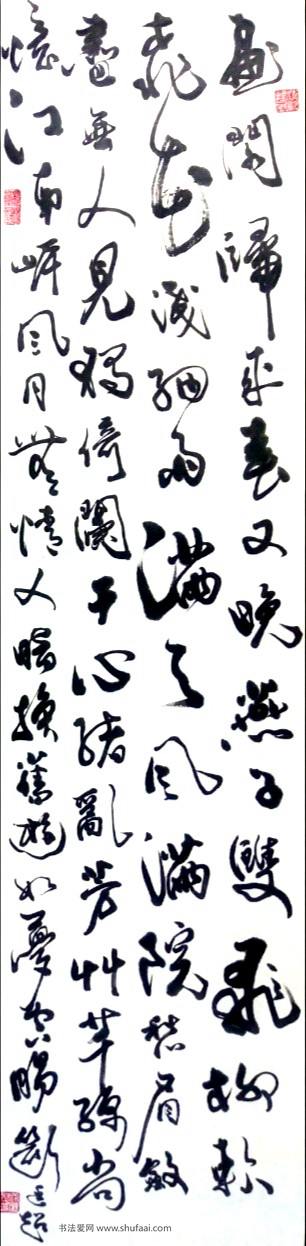 畫閣歸來春又晚燕子雙飛柳軟
桃花淺細雨滿天風滿院愁眉斂
盡無人見獨倚闌干心緒亂芳艸芊綿尚
憶江南岸風月無情人暗換舊遊如夢空腸斷
书法爱网 www.shufaai.com